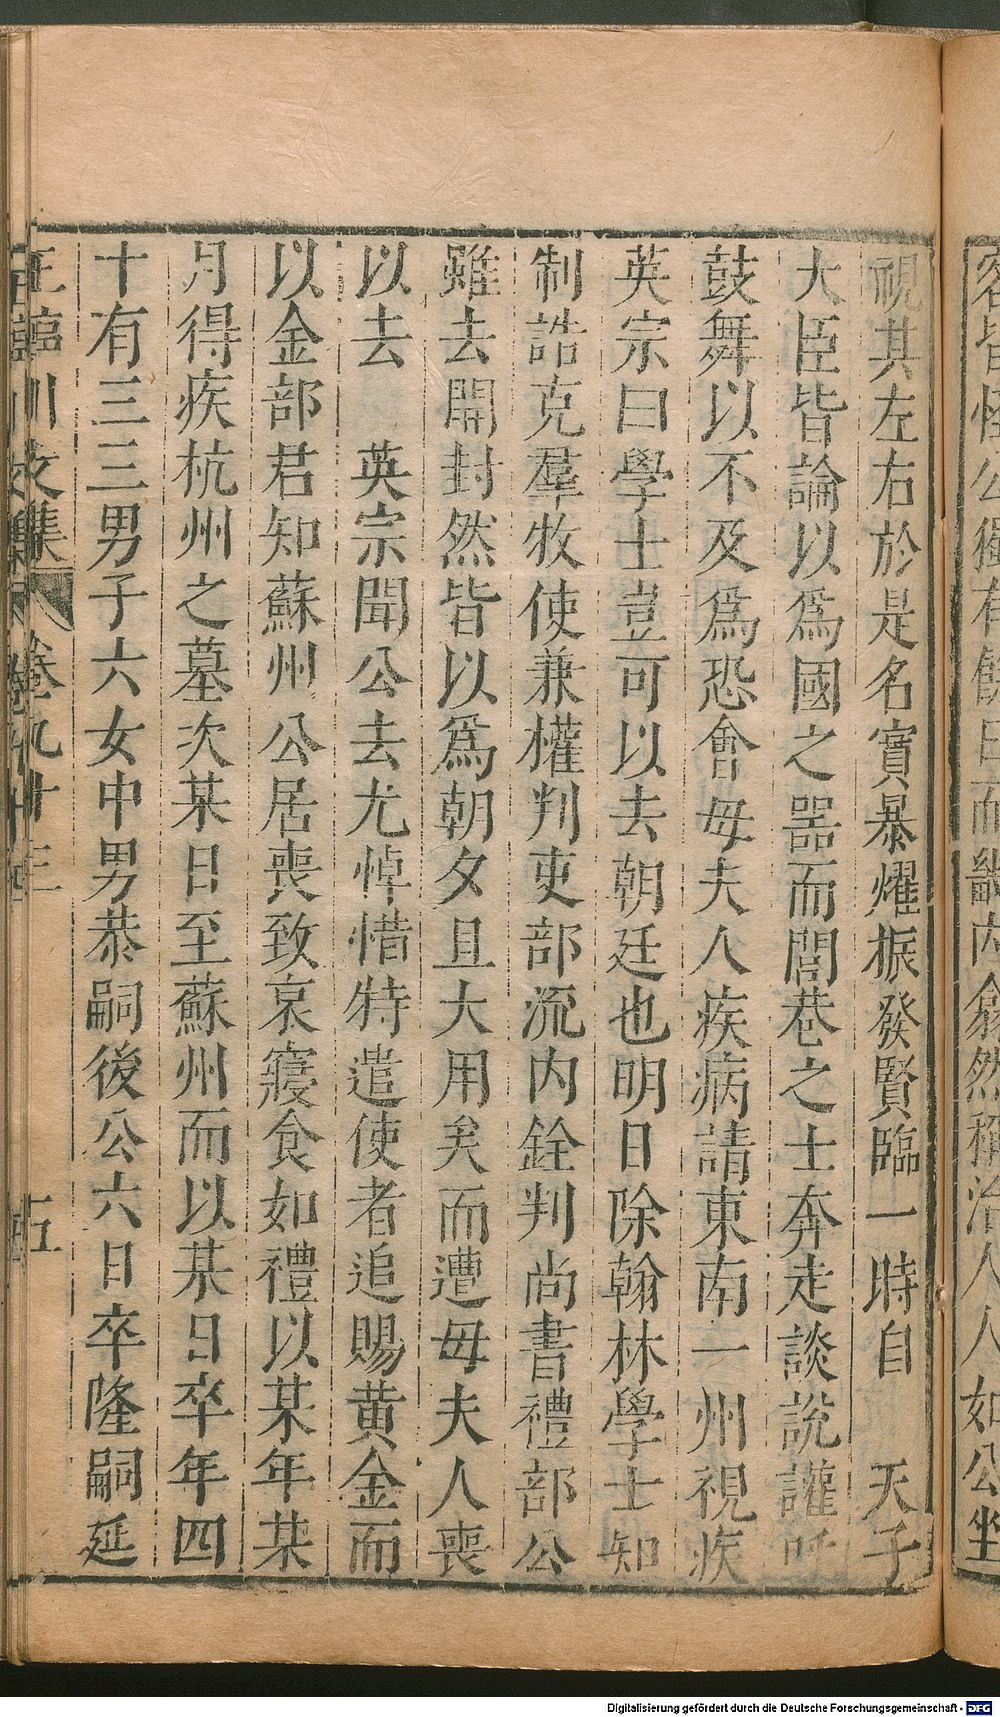 視其左右於是名實暴耀振發賢臨一時自　天子
大臣皆論以爲國之器而閭巷之士奔走談說讙呼
鼓舞以不及爲恐會母夫人疾病請東南一州視疾
英宗曰學士豈可以去朝廷也明日除翰林學士知
制誥克羣牧使兼權判吏部流内銓判尚書禮部公
雖去開封然皆以爲朝夕且大用矣而遭母夫人喪
以去　英宗聞公去尤悼惜特遣使者追賜黃金而
以金部君知蘇州公居喪致哀寢食如禮以某年某
月得疾杭州之墓次某日至蘇州而以某日卒年四
十有三三男子六女中男恭嗣後公六日卒隆嗣延
王臨川文集　卷九十三　五
客皆怪公獨有餘日而畿内翕然稱治人人如公坐
Digitalisierung gefördert durch die Deutsche Forschungsgemeinschaft - DFG